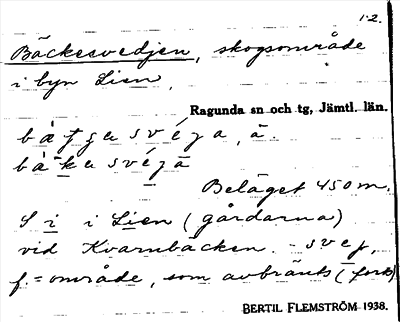 1-2.
Bäckesvedjen, skogsområde
i byn Lien,
Ragunda sn och tg, Jämtl. län.
svéʒa, ā.
svéʒā
Beläget 450 m.
S i i Lien (gårdarna)
vid Kvarnbäcken. - svej,
f. = område, som avbränts (fork)
BERTIL FLEMSTRÖM 1938.